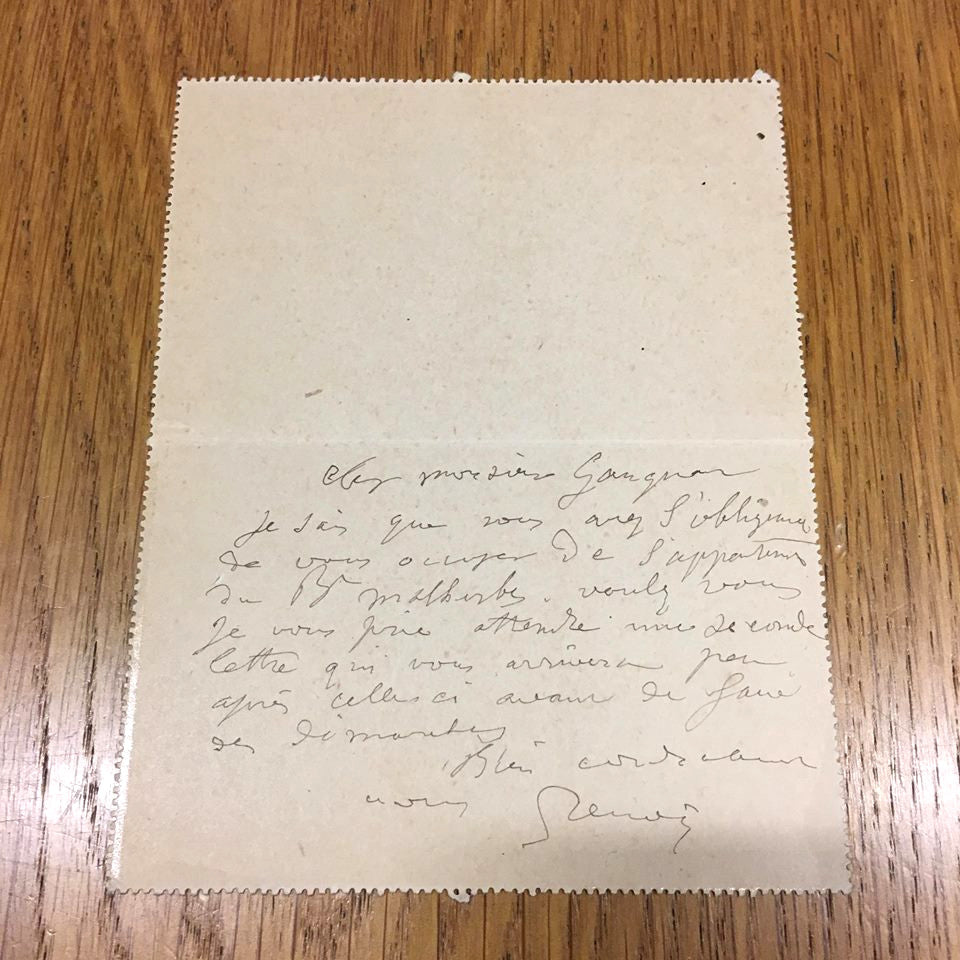 Cher monsieur Gangnat
Je sais que vous avez l'obligeance
de vous occuper de l'appartement
du Bd malherbes. voulez vous
Je vous prie attendre une seconde
lettre qui vous arrivera peu
après celle ci avant de faire
des démarches
Bien cordialement
à vous Renoir